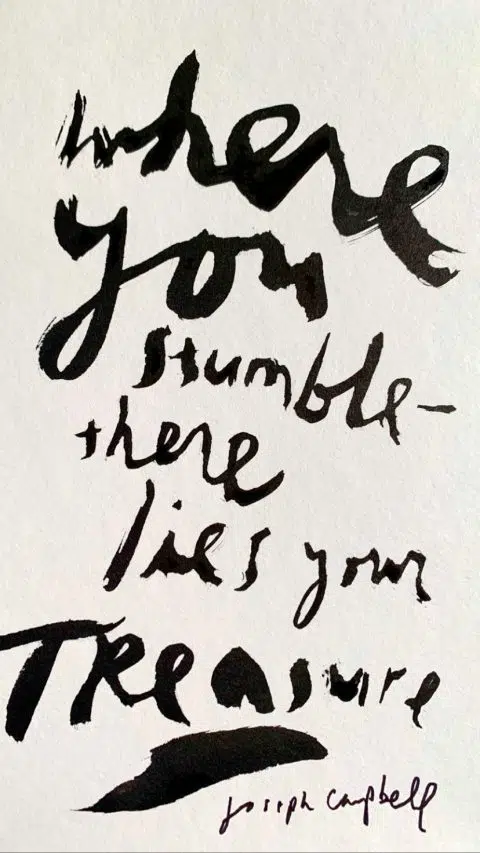 where
you
stumble-
there
lies your
TReasure
joseph campbell